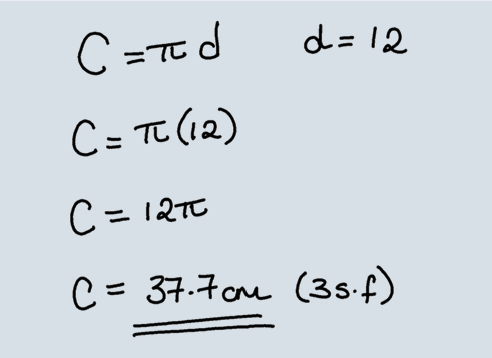 C = πd d = 12
C = π(12)
C = 12π
C = 37.7cm (3s.f)